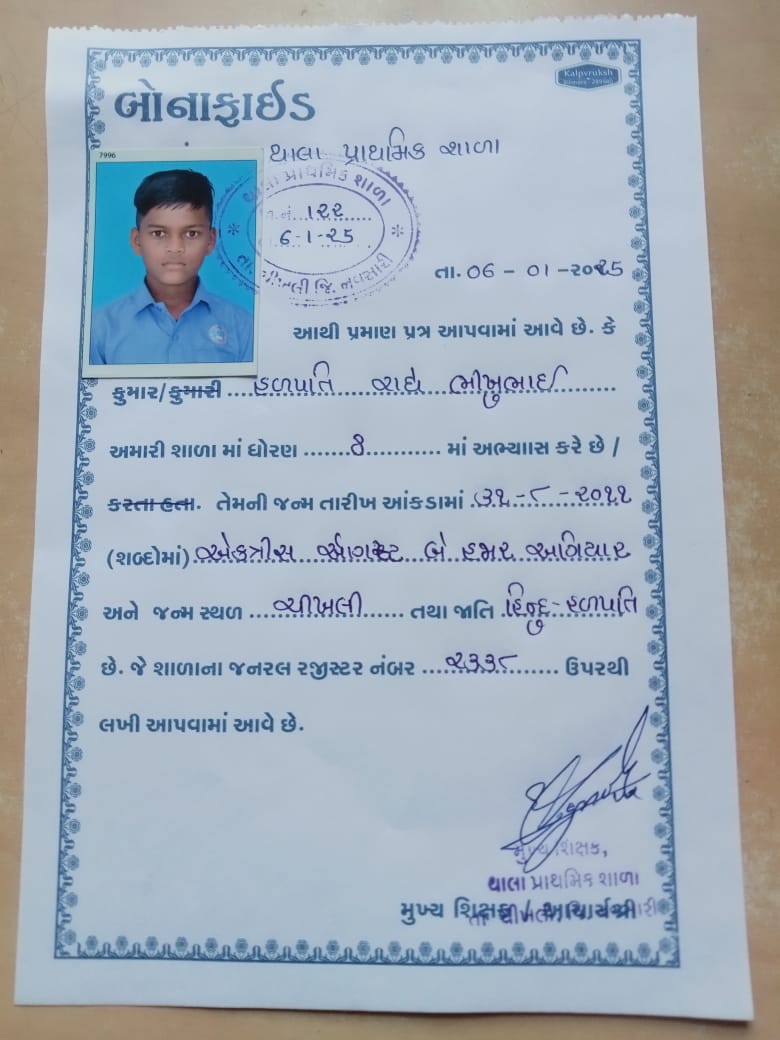 Kalpvruksh
બોનાફાઈડ
થાલા પ્રાથમિક શાળા
7996
થાલા પ્રાથમિક શાળા
નં. ૧૨૨
6-1-૨5
તા. ચીખલી જિ. નવસારી
તા. 06 - 01 - ૨૦૨5
આથી પ્રમાણ પત્ર આપવામાં આવે છે. કે
કુમાર/કુમારી હળપતિ ભીખુભાઈ
અમારી શાળા માં ધોરણ 8 માં અભ્યાસ કરે છે /
કરતા હતા. તેમની જન્મ તારીખ આંકડામાં ૩૧-૮-૨૦૧૧
(શબ્દોમાં) એકત્રીસ ઓગસ્ટ બે હજાર અગિયાર
અને જન્મ સ્થળ ચીખલી તથા જાતિ હિન્દુ-હળપતિ
છે. જે શાળાના જનરલ રજીસ્ટર નંબર ૨૩૩૮ ઉપરથી
લખી આપવામાં આવે છે.
મુખ્ય શિક્ષક,
થાલા પ્રાથમિક શાળા
મુખ્ય શિક્ષક / આચાર્યશ્રી